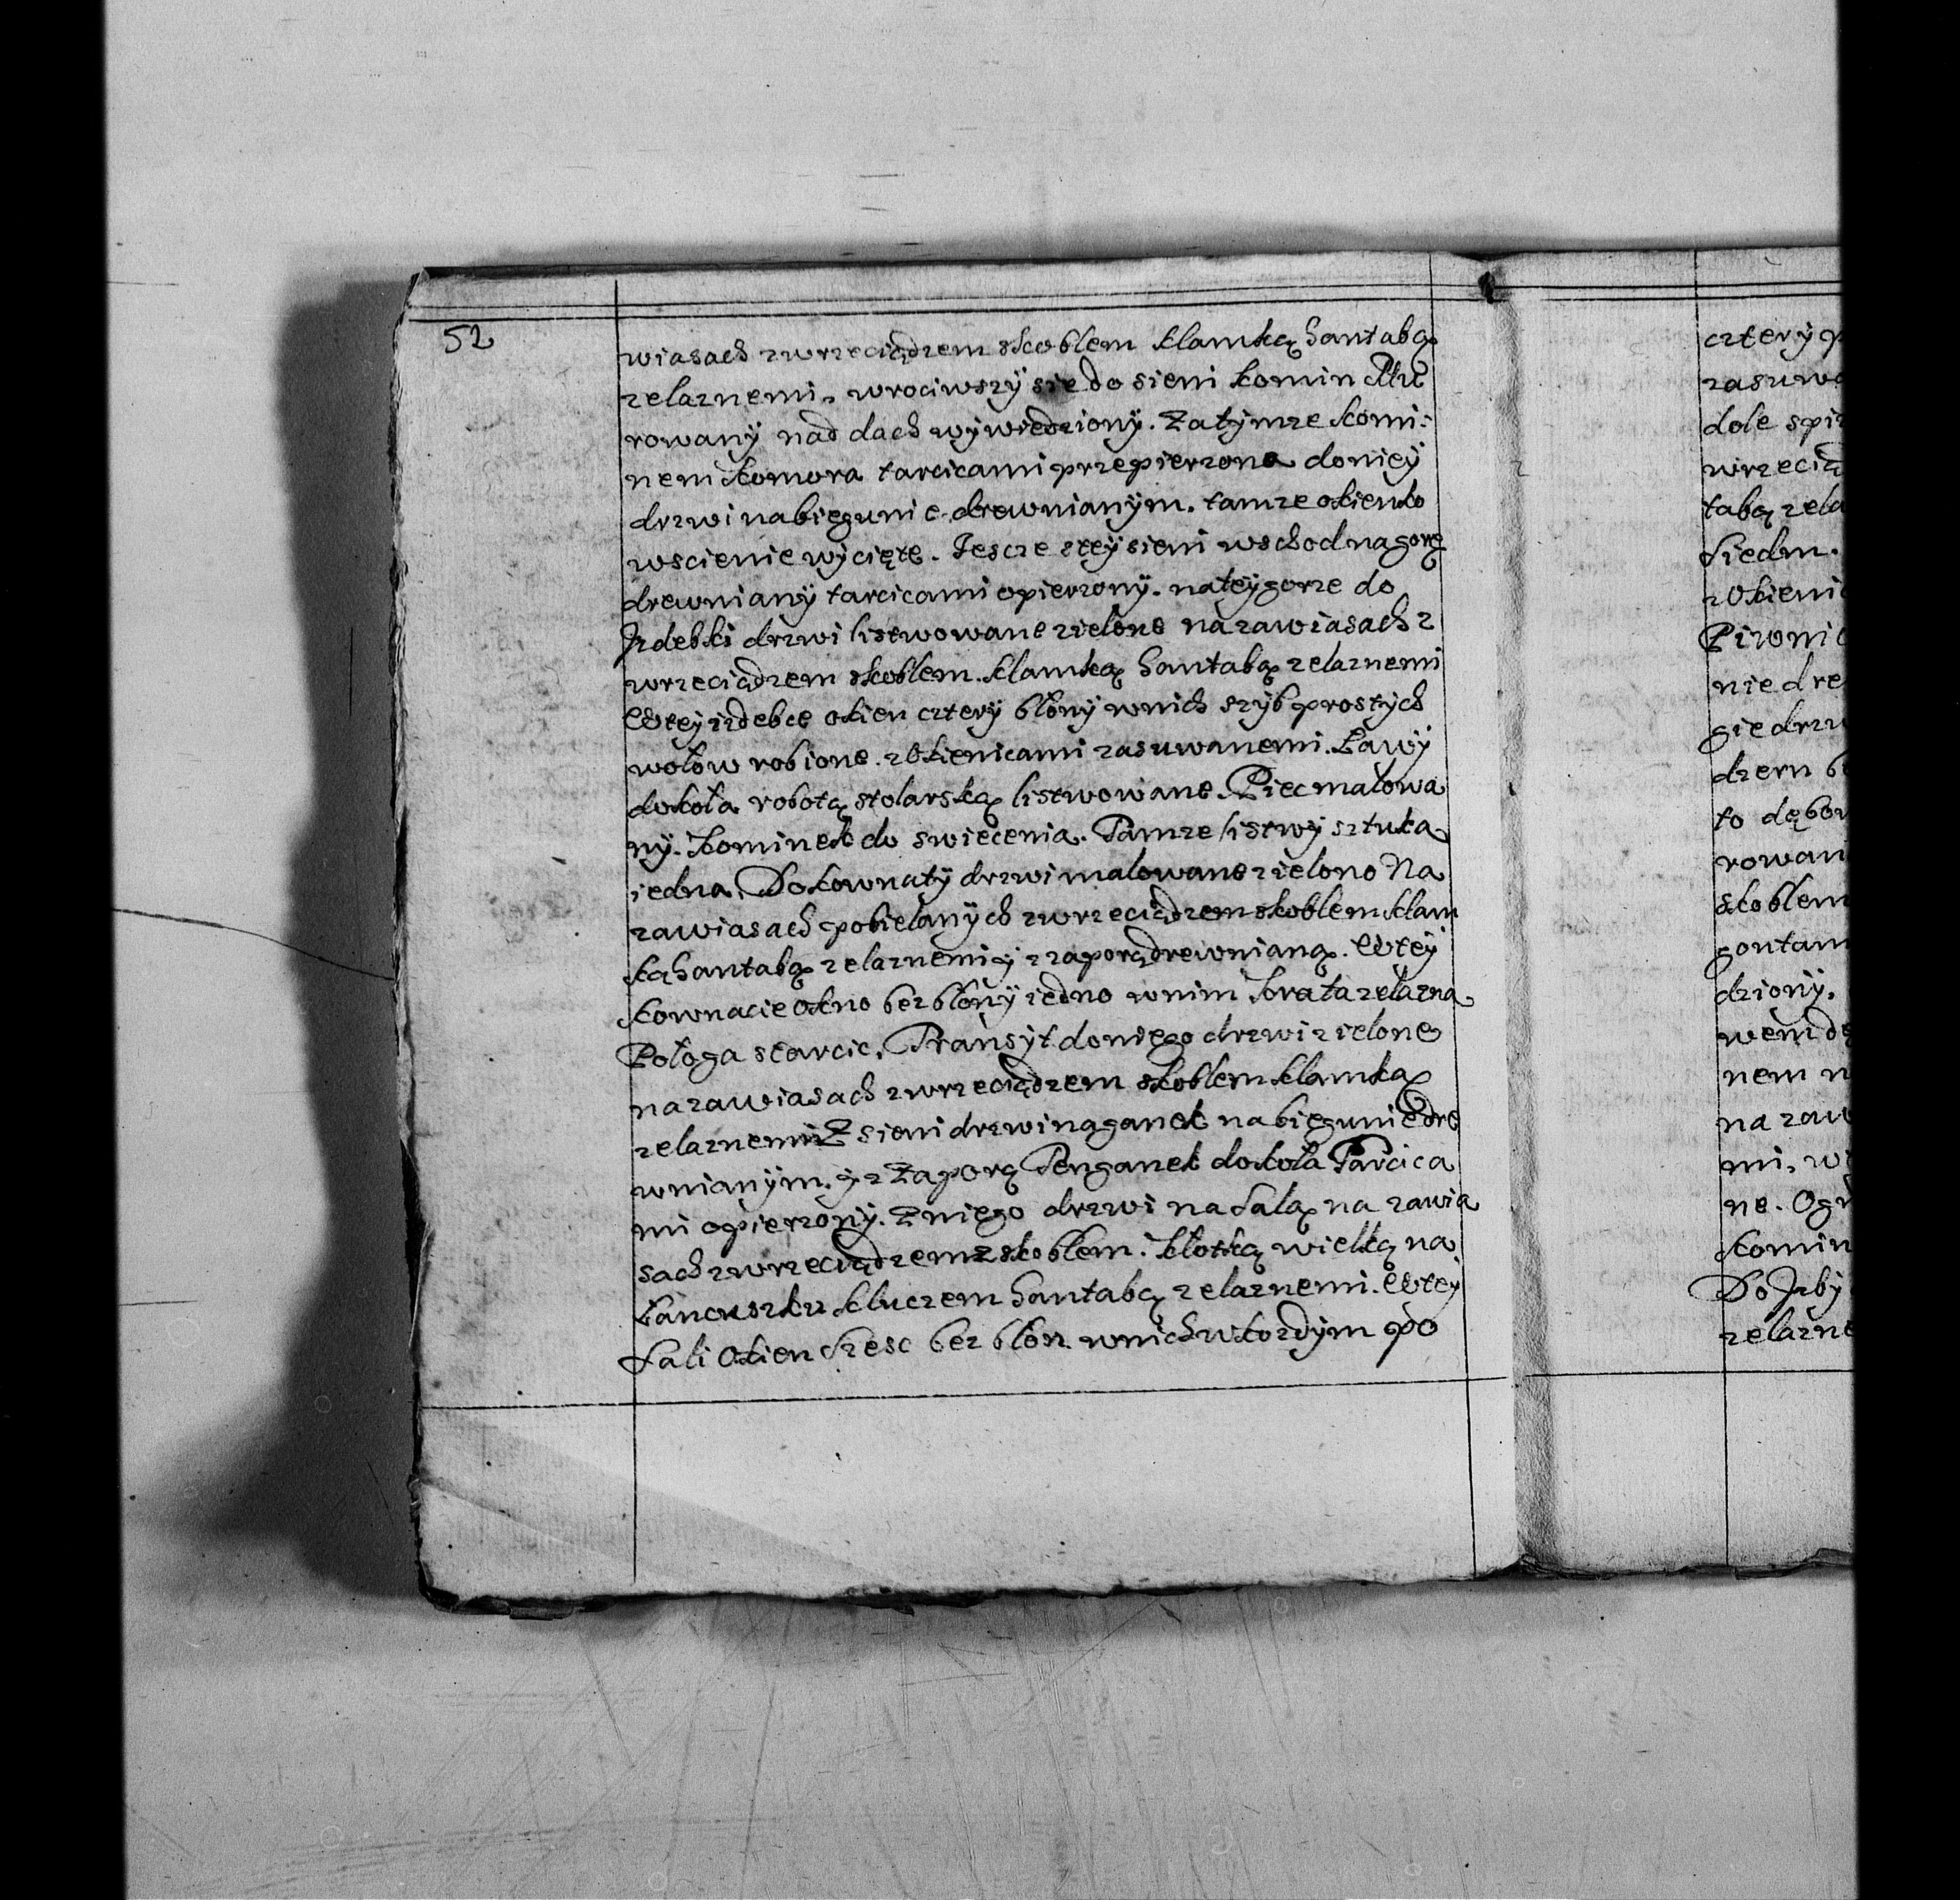 52
wiasach z wrzeciądzem skoblem klamką hantabą
zelaznemi. wrociwszÿ sie do sieni komin Mu
rowanÿ nad dach wÿwiedzionÿ. Za tÿmze komi:
nem komora tarcicami przepierzona do nieÿ
drzwi na biegunie drewnianÿm. tamze okienko
w scienie wÿcięte. Jescze z teÿ sieni wschod na gorę
drewnianÿ tarcicami opierzonÿ. na teÿ gorze do
Jzdebki drzwi listwowane zielone na zawiasach z
wrzeciądzem skoblem. klamką hantabą zelaznemi
W teÿ izdebce okien czterÿ błonÿ w nich szÿb prostÿch
w ołow robione. z Okienicami zasuwanemi. Ławÿ
dokoła robotą stolarską listwowane. Piec malowa
nÿ. Kominek do swiecenia. Tamze listwÿ sztuka
iedna. Do kownatÿ drzwi malowane zielono Na
zawiasach pobielanÿch z wrzeciądzem skoblem klam
ką hantabą zelaznemi ÿ z zaporą drewnianą. W teÿ
kownacie okno bez błonÿ iedno w nim krata zelazna
Połoga s tarcic. Transÿt do niego drzwi zielone
na zawiasach z wrzeciądzem skoblem klamką
zelaznemi Z sieni drzwi na ganek na biegunie dre
wnianÿm. ÿ z Zaporą Ten ganek dokoła Tarcica
mi opierzonÿ. Z niego drzwi na Salą na zawia
sach z wrzeciądzem z skoblem. kłotką wielką na
Łancuszku kluczem hantabą zelaznemi. W teÿ
Sali Okien Szesc bez błon. w nich w kozdÿm po
czterÿ
zasuw
dole
wrzecią
tabą zela
Siedm.
z Okieni
Piwnic
nie dre
gie drzw
dzem b
to dębow
rowan
skoblem
gontam
dzionÿ.
wem
nem
na zaw
mi.
ne. Og
komin
Do Jzbÿ
zelazne